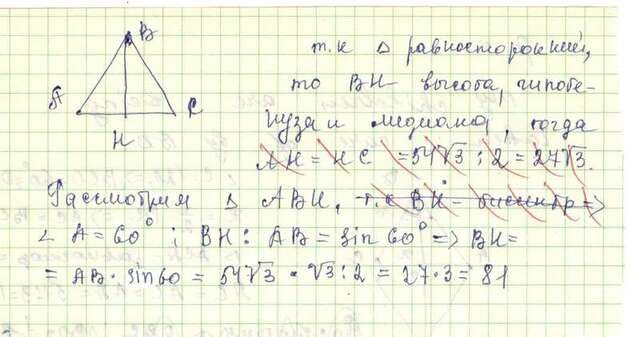 B
A
C
H
т.к △ равносторонний,
то BH высота, гипоте-
нуза и медиана, тогда
AH = HC = 54√3 : 2 = 27√3.
Рассмотрим △ ABH, т.к BH - биссектр =>
∠ A = 60° ; BH : AB = sin 60° => BH =
= AB · sin 60 = 54√3 · √3 : 2 = 27 · 3 = 81